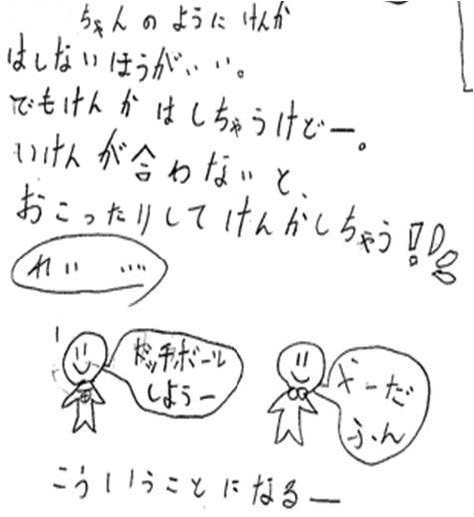 ちゃんのようにけんか
はしないほうがいい。
でもけんかはしちゃうけどー。
いけんが合わないと、
おこったりしてけんかしちゃう!
れい …
ドッチボール
しようー
やーだ
ふん
こういうことになるー